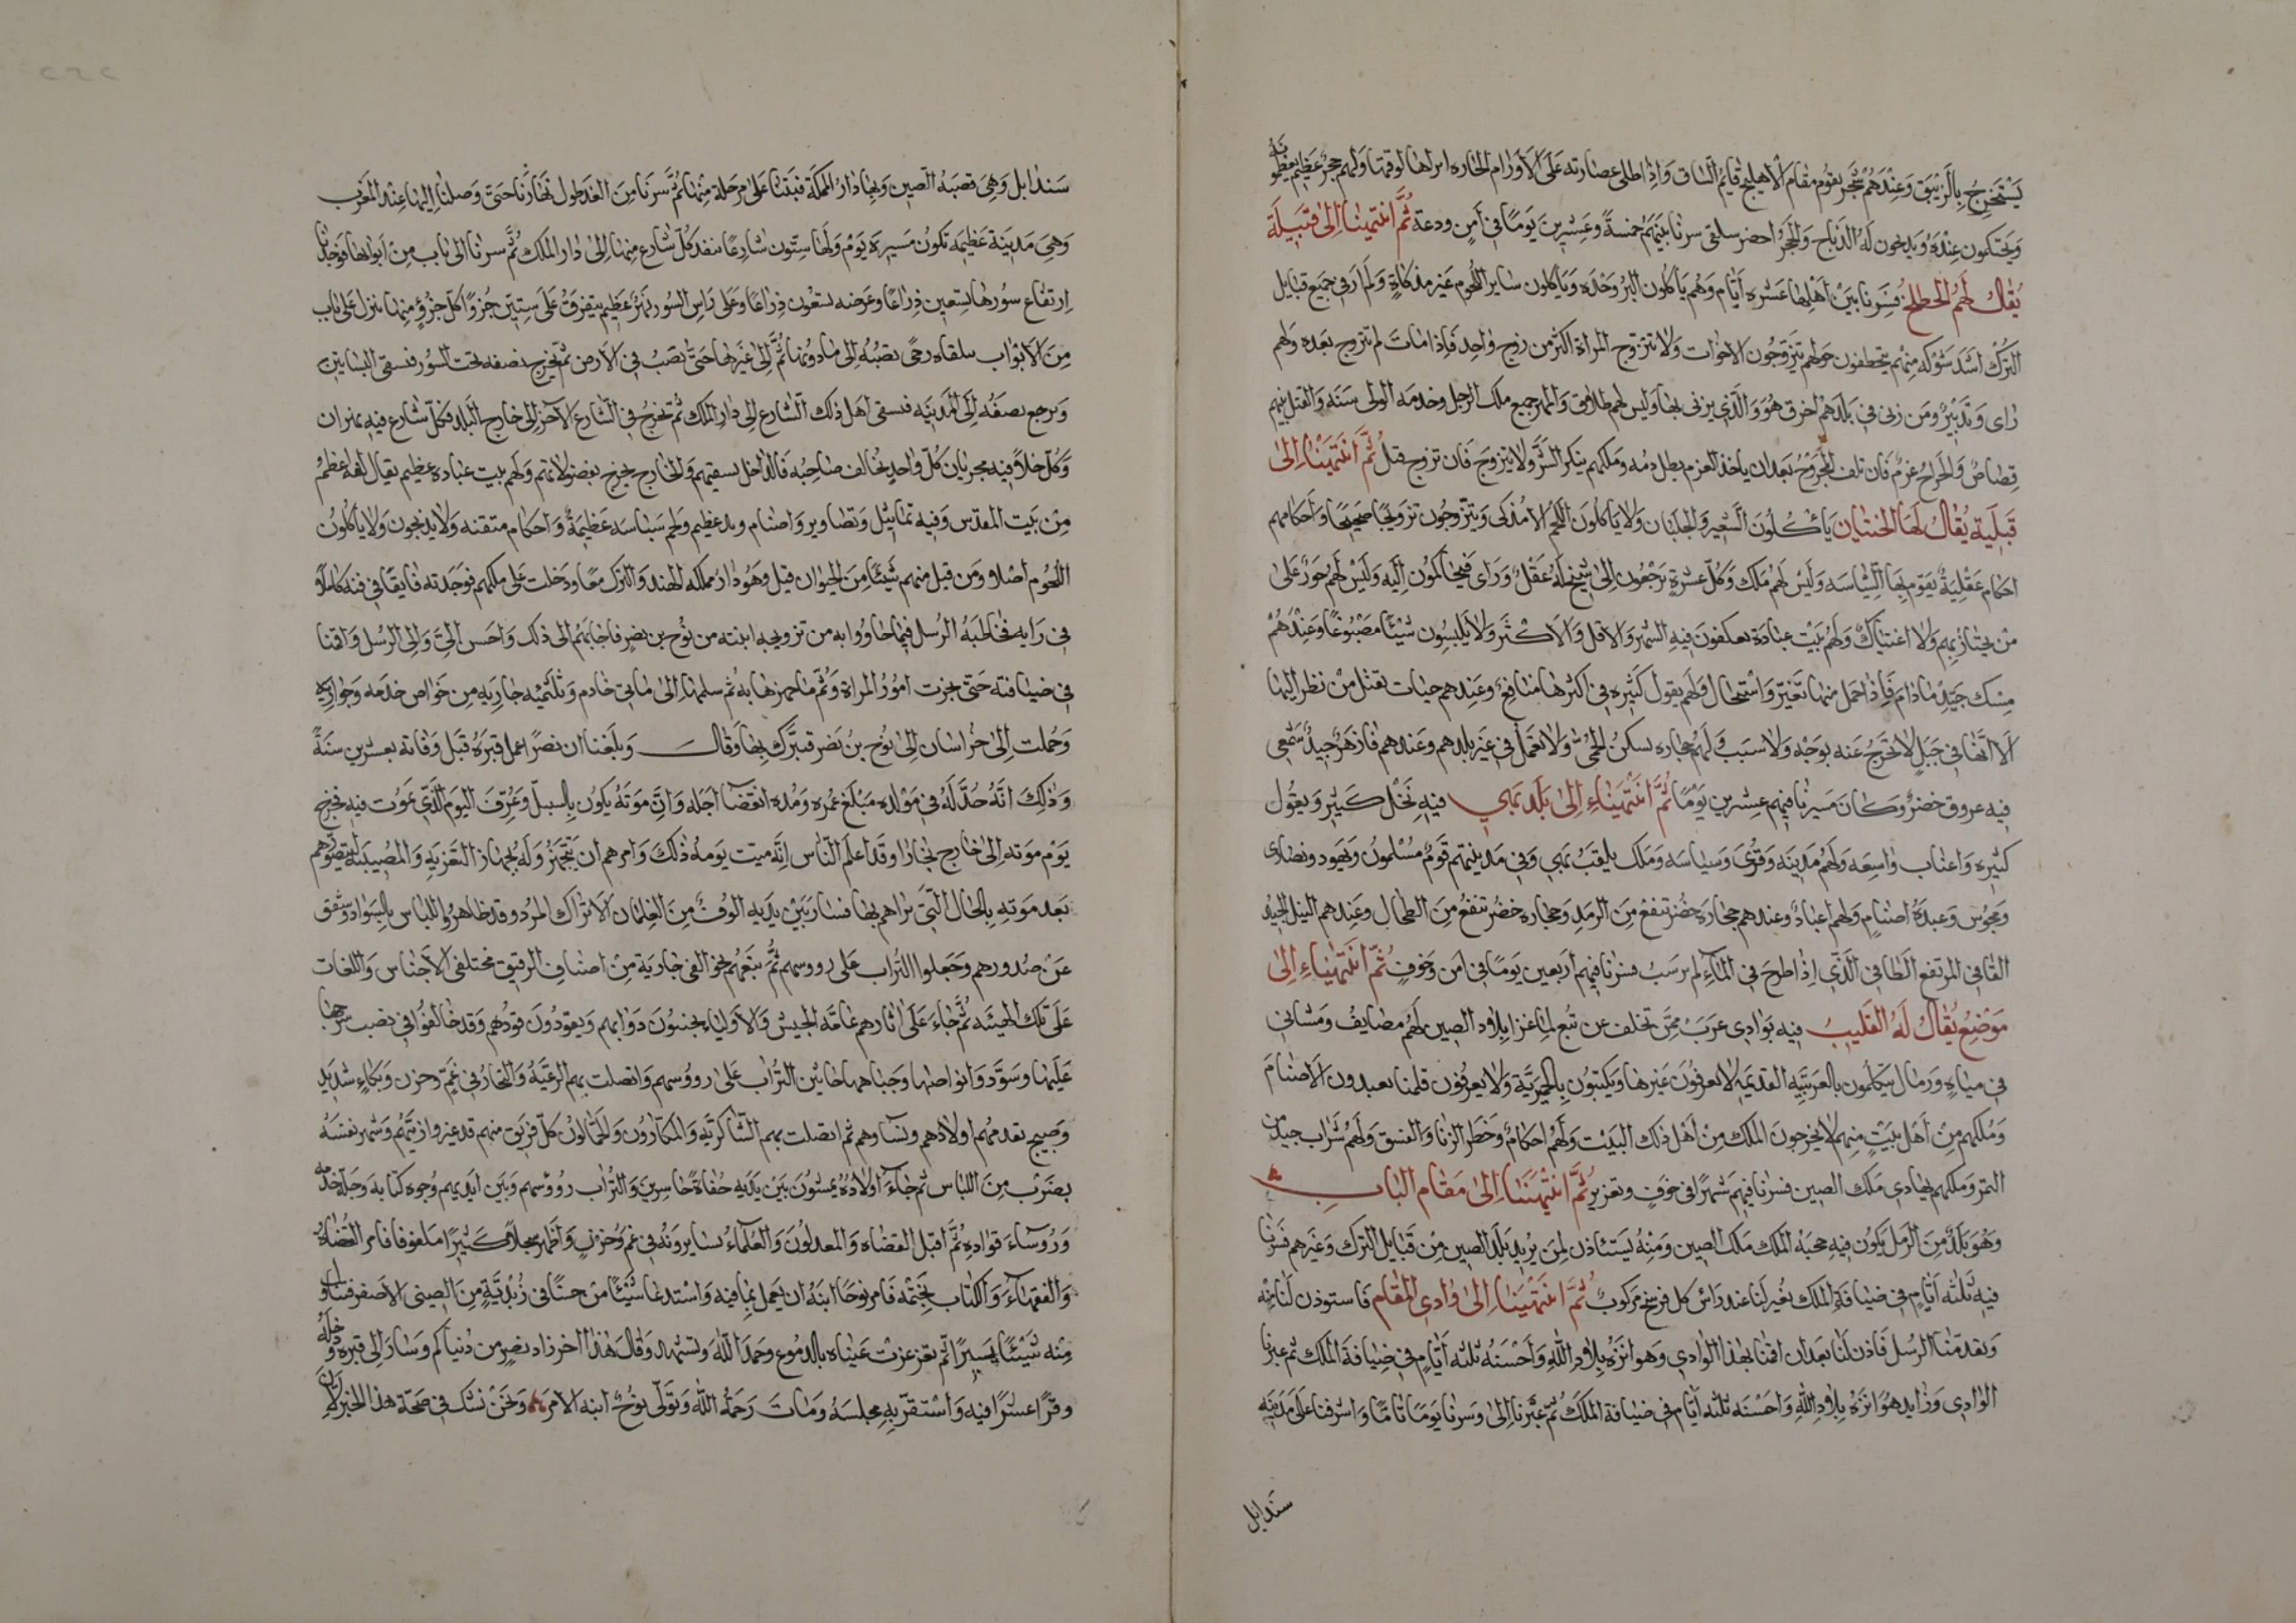 يستخرج بالزيبق وعندهم شجر يقوم مقام الاهليلج قايم الساق واذا طلى عصارته على الاورام الحاره ابراها لوقتها ولهم حجر عظيم يعظمونه
ويحتكمون عنده ويذبحون له الذبايح والحجر اخضر سلقى سرنا بينهم خمسة وعشرين يوما فى امن ودعة ثم انتهينا الى قبيلة
يقال لهم الخطلخ فسرنا بين اهلها عشره ايام وهم ياكلون البر وحده وياكلون ساير اللحوم غير مذكاة ولم ار فى جميع قبايل
الترك اشد شوكه منهم يتخطفون حولهم يتزوجون الاخوات ولا تتزوج المراة اكثر من زوج واحد فاذا مات لم تزوج بعده ولهم
راى وتدبير ومن زنى فى بلدهم احرق هو والذى يزنى بها وليس لهم طلاق والمهر جميع ملك الرجل وخدمه الولى سنه والقتل بينهم
قصاص والجراح غرم فان تلف المجروح بعد ان ياخذ الغرم بطل دمه وملكهم ينكر الشر ولا يتزوج فان تزوج قتل ثم انتهينا الى
قبيلة يقال لها الختيان ياكلون الشعير والجلبان ولا ياكلون اللحم الا مذكى ويتزوجون تزويجا صحيحا واحكامهم
احكام عقلية يقوم بها السياسه وليس لهم ملك وكل عشرة يرجعون الى شيخ له عقل وراى فيتحاكمون اليه وليس لهم جور على
من يجتاز بهم ولا اغتيال ولهم بيت عبادة يعتكفون فيه الشهر والاقل والاكثر ولا يلبسون شيئا مصبوغا وعندهم
مسك جيد ما دام فاذا حمل منها تغير واستحال ولهم بقول كثيره فى اكثرها منافع وعندهم حيات تقتل من نظر اليها
الا انها فى جبل لا تخرج عنه بوجه ولا سبب ولهم حجاره تسكن الحمى ولا تعمل فى غير بلدهم وعندهم فازهر جيد شمعى
فيه عروق خضر وكان مسيرنا فيهم عشرين يوما ثم انتهينا الى بلد بهى فيه نخل كثير وبقول
كثيره واعناب واسعه ولهم مدينه وقرى وسياسه وملك يلقب بهى وفى مدينتهم قوم مسلمون ويهود ونصارى
ومجوس وعبدة اصنام ولهم اعياد وعندهم حجارة خضر تنفع من الرمد وحجاره خضر تنفع من الطحال وعندهم النيل الجيد
القانى المرتفع الطافى الذى اذا طرح فى الماء لم يرسب فسرنا فيهم اربعين يوما فى امن وخوف ثم انتهينا الى
موضع يقال له القليب فيه بوادى عرب ممن تخلف عن تبع لما غزا بلاد الصين لهم مصايف ومشاتى
فى مياه ورمال يتكلمون بالعربيه القديمه لا يعرفون غيرها ويكتبون بالحميرية ولا يعرفون قلمنا يعبدون الاصنام
وملكهم من اهل بيت منهم لا يخرجون الملك من اهل ذلك البيت ولهم احكام وحظر الزنا والفسق ولهم شراب جيد من
التمر وملكهم يهادى ملك الصين فسرنا فيهم شهرا فى خوف وتغرير ثم انتهينا الى مقام الباب
وهو بلد من الرمل يكون فيه حجبة الملك ملك الصين ومنه يستاذن لمن يريد بلد الصين من قبايل الترك وغيرهم فسرنا
فيه ثلثه ايام فى ضيافة الملك يغير لنا عند راس كل فرسخ مركوب ثم انتهينا الى وادى المقام فاستوذن لنا منه
وتقدمنا الرسل فاذن لنا بعد ان اقمنا بهذا الوادى وهو انزه بلاد الله واحسنه ثلثه ايام فى ضيافة الملك ثم عبرنا
الوادى وزايد هو انزه بلاد الله واحسنه ثلثه ايام فى ضيافة الملك ثم عبرنا الى وسرنا يوما تاما واشرفنا على مدينه
سندابل
سندابل وهى قصبه الصين وبها دار المملكة فبتنا على مرحلة منها ثم سرنا من الغد طول نهارنا حتى وصلنا اليها عند المغرب
وهى مدينة عظيمه تكون مسيره يوم ولها ستون شارعا ينفذ كل شارع منها الى دار الملك ثم سرنا الى باب من ابوابها فوجدنا
ارتفاع سورها تسعين ذراعا وعرضه تسعون ذراعا وعلى راس السور نهر عظيم يتفرق على ستين جزوا كل جزؤ منها ينزل على باب
من الابواب يتلقاه رحى تصبه الى ما دونها ثم الى غيرها حتى تصب فى الارض ثم يخرج نصفه تحت السور فيسقى البساتين
ويرجع نصفه الى المدينه فيسقى اهل ذلك الشارع الى دار الملك ثم تخرج فى الشارع الاخر الى خارج البلد فكل شارع فيه نهران
وكل خلاء فيه مجريان كل واحد يخالف صاحبه فالداخل يسقيهم والخارج يخرج بفضولاتهم ولهم بيت عباده عظيم يقال انها اعظم
من بيت المقدس وفيه تماثيل وتصاوير واصنام وبد عظيم ولهم سياسه عظيمة واحكام متقنه ولا يذبحون ولا ياكلون
اللحوم اصلا ومن قتل منهم شيئا من الحيوان قتل وهو دار مملكه الهند والترك معا ودخلت على ملكهم فوجدته فايقا فى فنه كاملا
فى رايه فخاطبه الرسل فيما جاووا به من تزويجه ابنته من نوح بن نصر فاجابهم الى ذلك واحسن الى والى الرسل واقمنا
فى ضيافته حتى نجزت امور المراة وتم ما جهزها به ثم سلمها الى مايتى خادم وثلثميه جاريه من خواص خدمه وجواريه
وحملت الى خراسان الى نوح بن نصر فتبرك بها وقال وبلغنا ان نصرا عمل قبره قبل وفاته بعشرين سنة
وذلك انه حد له فى مولده مبلغ عمره ومده انقضا اجله وان موته يكون بالسل وعرف اليوم الذى يموت فيه فخرج
يوم موته الى خارج بخارا وقد اعلم الناس انه ميت يومه ذلك وامرهم ان يتجهز وله بجهاز التعزيه والمصيبة ليتصورهم
بعد موته بالحال التى يراهم بها فسار بين يديه الوف من الغلمان الاتراك المرد وقد ظاهروا اللباس بالسواد وشق
عن صدورهم وجعلوا التراب على رووسهم ثم تبعهم نحو الفى جارية من اصناف الرقيق مختلفى الاجناس واللغات
على تلك الهيئه ثم جاء على اثارهم عامة الجيش والاولياء يجنبون دوابهم ويقودون قودهم وقد خالفوا فى نصب سرجها
عليها وسود وانواصها وجباهها حاثين التراب على رووسهم واتصلت بهم الرعيه والتجار فى غم وحزن وبكاء شديد
وضجيج يقدمهم اولادهم ونساوهم ثم اتصلت بهم الشاكريه والمكارون والحمالون كل فريق منهم قد غيروا زيهم وشهر نفسه
بضرب من اللباس ثم جاء اولاده يمشون بين يديه حفاة حاسرين والتراب رووسهم وبين ايديهم وجوه كتابه وجلة خدمه
وروساء قواده ثم اقبل القضاه والمعدلون والعلماء يسايرونه فى غم وحزن واظهر سجلا كبيرا ملفوفا فامر القضاه
والفقهاء والكتاب بختمه فامر نوحا ابنه ان يعمل بما فيه واستدعا شيئا من حسا فى زبدية من الصينى الاصفر فتناول
منه شيئا يسيرا ثم تغرغرت عيناه بالدموع وحمد الله وتشهد وقال هذا اخر زاد نصر من دنياكم وسار الى قبره ودخله
وقرا عشرا فيه واستقر به مجلسه ومات رحمه الله وتولى نوح ابنه الامر ونحن نشك فى صحة هذا الخبر لان